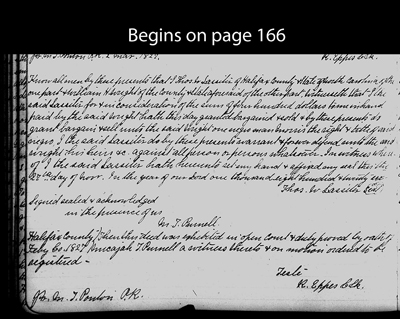 Begins on page 166
for M. T. Ponton P.R. 2 Mar. 1827. R. Eppes Clk.
Know all men by these presents that I Thos. W Lassiter of Halifax County & State of North Carolina of the
one part & William H Wright of the County & State aforesaid of the other part, witnesseth that I the
said Lassiter for & in consideration of the sum of five hundred dollars to me in hand
paid by the said Wright hath this day granted bargained & sold & by these presents do
grant bargain & sell unto the said Wright one negro man the right & title of said
negro, I the said Lassiter do by these presents warrant & forever defend unto the said
Wright his heirs &c against all person or persons whatsoever. In witness where
of I the said Lassiter hath hereunto set my hand & affixed my seal this the
day of Nov. In the year of our Lord one thousand eight hundred & twenty six
Thos. W Lassiter Seal
Signed sealed & acknowledged
in the presence of us
M. T. Purnell
Halifax County Then this deed was exhibited in open Court & duly proved by oath of
Feby. Ct. 1827. Micajah T. Purnell a witness thereto & on motion ordered to be
registered —
Teste
R. Eppes Clk.
for M. T. Ponton P.R.